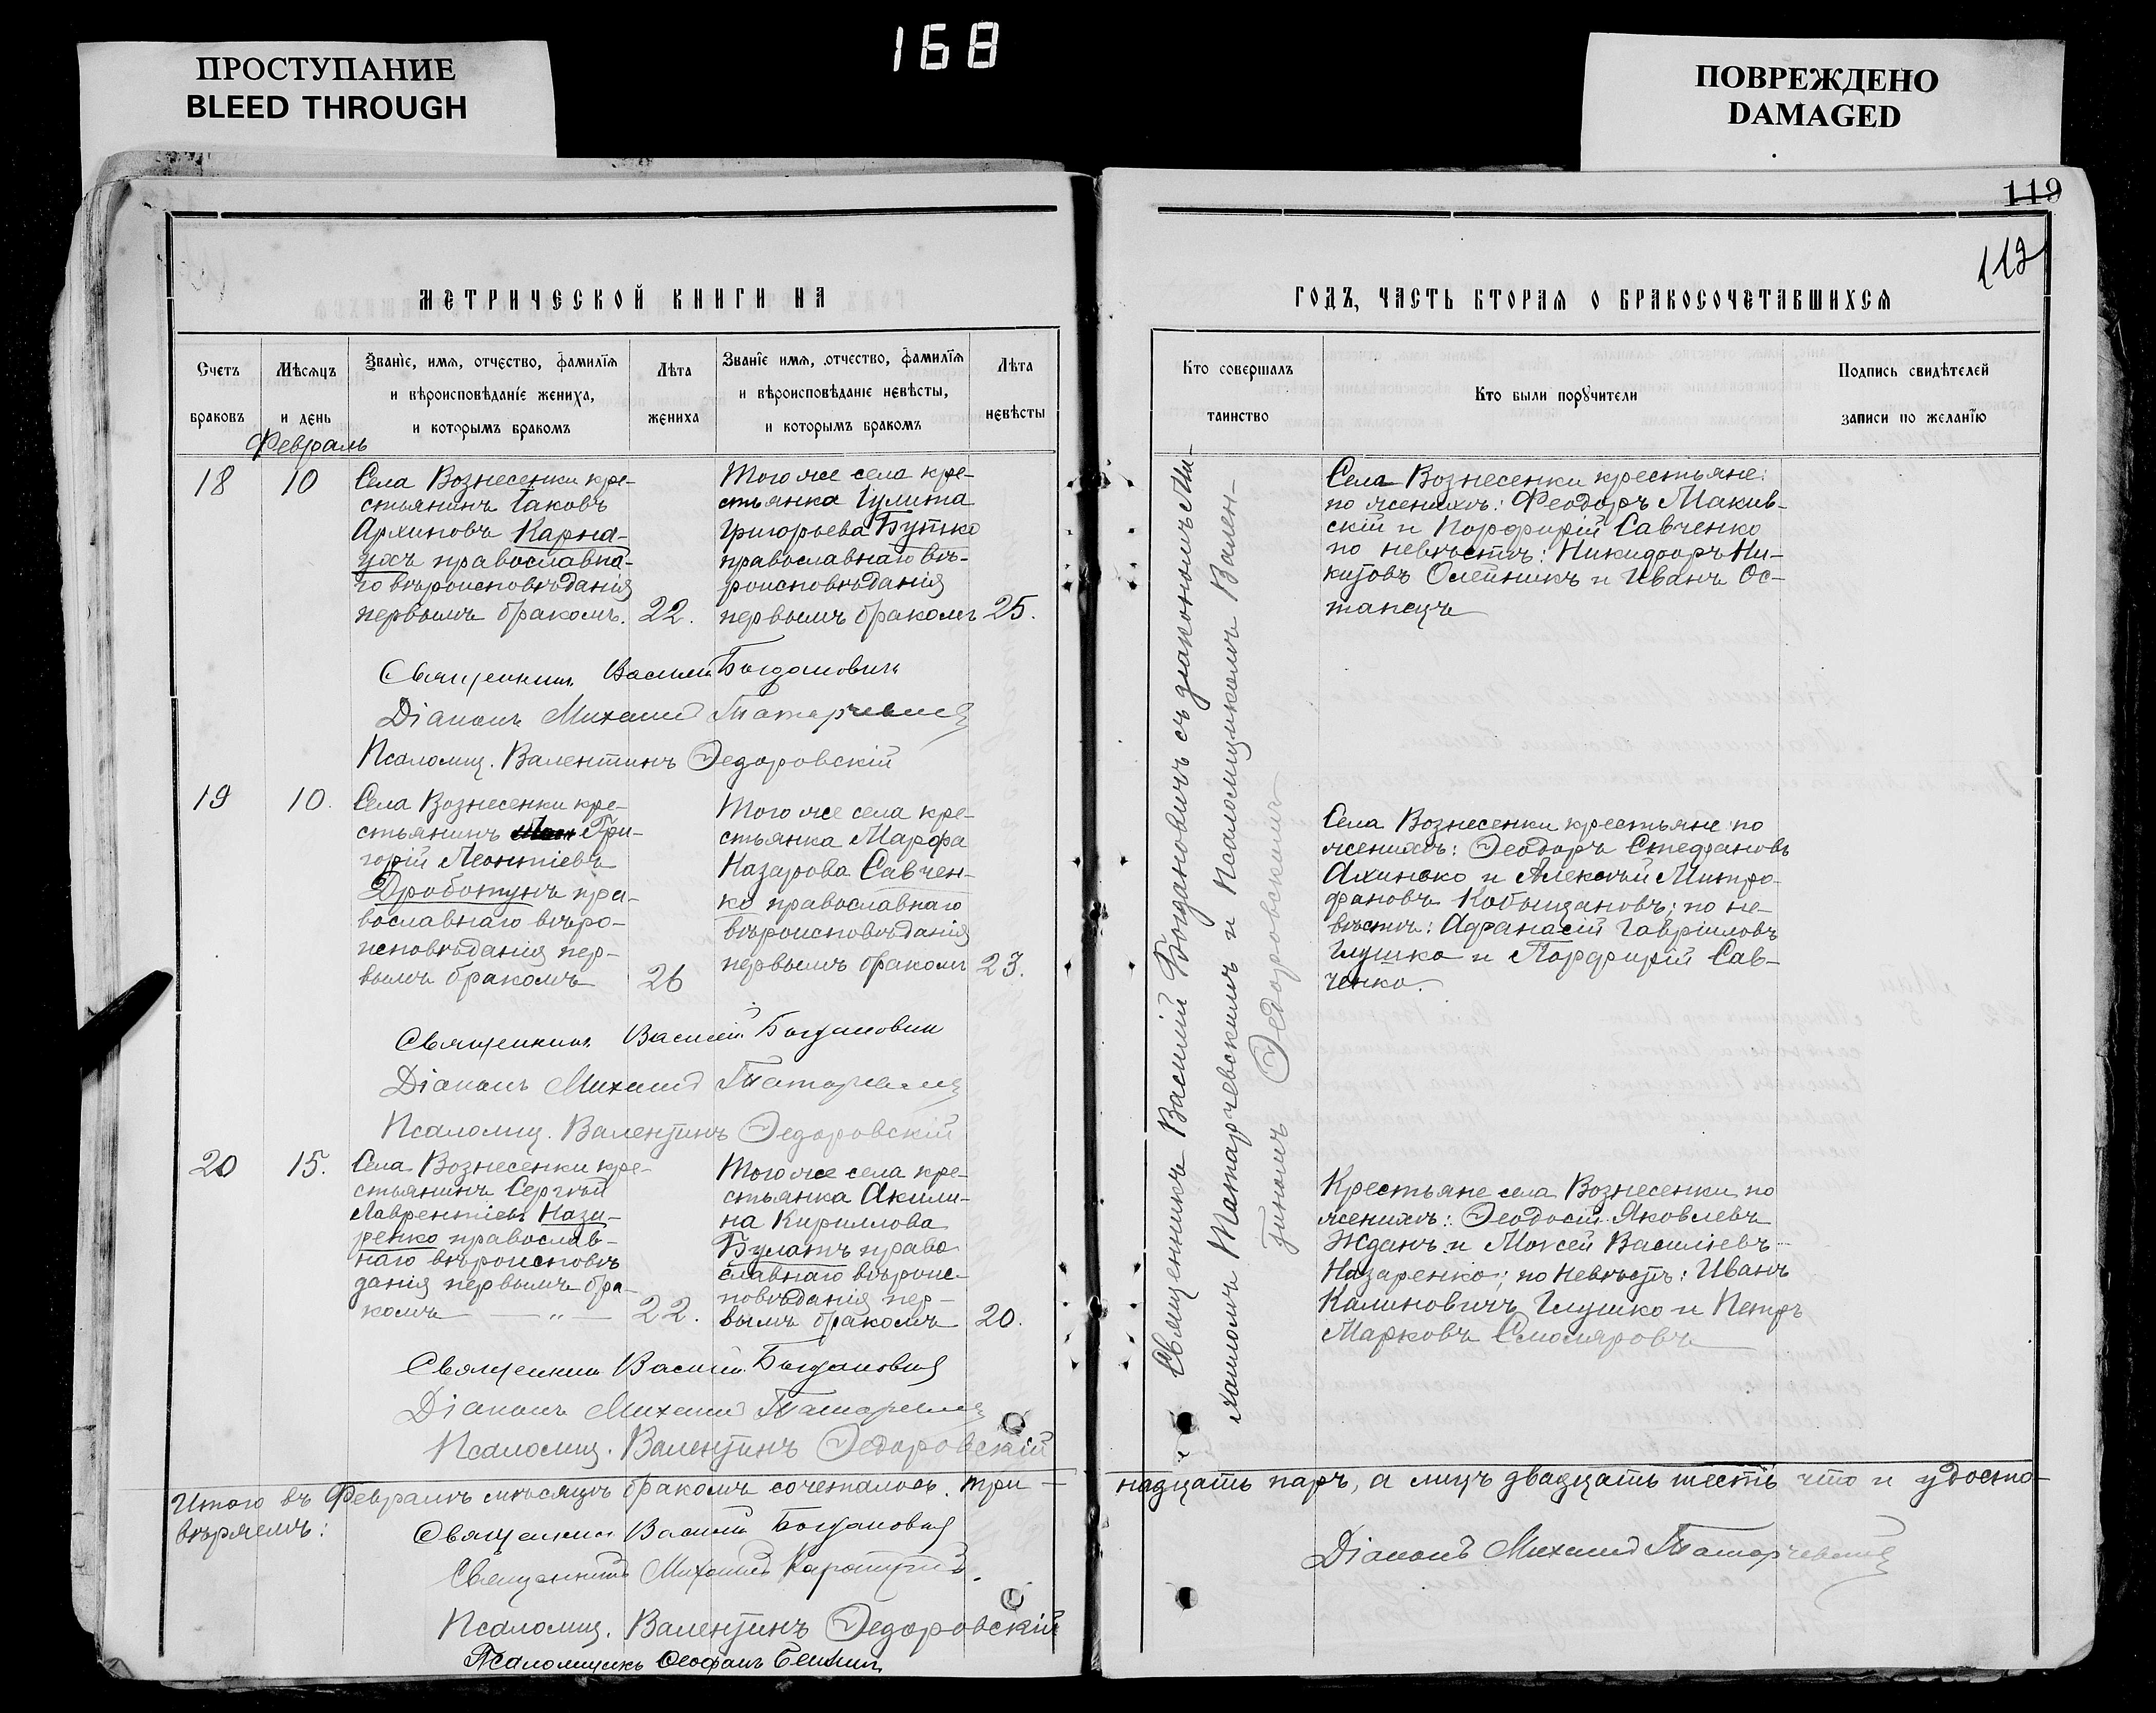 168
ПРОСТУПАНИЕ
BLEED THROUGH
ПОВРЕЖДЕНО
DAMAGED
119
112
МЕТРИЧЕСКОЙ КНИГИ НА
ГОДЪ, ЧАСТЬ ВТОРАЯ О БРАКОСОЧЕТАВШИХСЯ
Счетъ
браковъ
Мѣсяцъ
и день
Званіе, имя, отчество, фамилія
и вѣроисповѣданіе жениха,
и которымъ бракомъ
Лѣта
жениха
Званіе имя, отчество, фамилія
и вѣроисповѣданіе невѣсты,
и которымъ бракомъ
Лѣта
невѣсты
Кто совершалъ
таинство
Кто были поручители
Подпись свидѣтелей
записи по желанію
Февраль
18
10
Села Вознесенки кре-
стьянинъ Іаковъ
Архиповъ Карна-
ухъ православна-
го вѣроисповѣданія
первымъ бракомъ.
22.
Того же села кре-
стьянка Іулита
Григорьева Бутко
православнаго вѣ-
роисповѣданія
первымъ бракомъ
25.
Села Вознесенки крестьяне:
по женихѣ: Феодоръ Макив-
скій и Порфирій Савченко
по невѣстѣ: Никифоръ Ни-
китовъ Олейникъ и Иванъ Ос-
тапецъ
Священникъ Василій Богдановичъ
Діаконъ Михаилъ Татарчевскій
Псаломщ. Валентинъ Ѳедоровскій
19
10.
Села Вознесенки кре-
стьянинъ Гри-
горій Леонтіевъ
Дроботунъ пра-
вославнаго вѣро-
исповѣданія пер-
вымъ бракомъ
26
Того же села кре-
стьянка Марфа
Назарова Савчен-
ко православнаго
вѣроисповѣданія
первымъ бракомъ
23.
Села Вознесенки крестьяне по
женихѣ: Ѳеодоръ Стефановъ
Ахинько и Алексѣй Митро-
фановъ Кобыщановъ; по не-
вѣстѣ: Афанасій Гавріиловъ
Глушко и Порфирій Сав-
ченко.
Священникъ Василій Богдановичъ
Діаконъ Михаилъ Татарчевскій
Псаломщ. Валентинъ Ѳедоровскій
20
15.
Села Вознесенки кре-
стьянинъ Сергѣй
Лаврентіевъ Наза-
ренко православ-
наго вѣроисповѣ
данія первымъ бра-
комъ — „ —
22.
Того же села кре-
стьянка Акили-
на Кириллова
Булатъ право
славнаго вѣроис-
повѣданія пер-
вымъ бракомъ
20.
Крестьяне села Вознесенки по
женихѣ: Ѳеодосій Яковлевъ
Жданъ и Моисей Василіевъ
Назаренко; по невѣстѣ: Иванъ
Калиновичъ Глушко и Петръ
Марковъ Смоляровъ
Священникъ Василій Богдановичъ
Діаконъ Михаилъ Татарчевскій
Псаломщ. Валентинъ Ѳедоровскій
Священникъ Василій Богдановичъ съ діакономъ Ми-
хаиломъ Татарчевскимъ и Псаломщикомъ Вален-
тиномъ Ѳедоровскимъ
Итого въ Февралѣ мѣсяцѣ бракомъ сочеталось три-
надцать паръ, а лицъ двадцать шесть что и удосто-
вѣряемъ:
Священникъ Василій Богдановичъ
Священникъ Михаилъ
Псаломщ. Валентинъ Ѳедоровскій
Псаломщикъ Ѳеофанъ
Діаконъ Михаилъ Татарчевскій